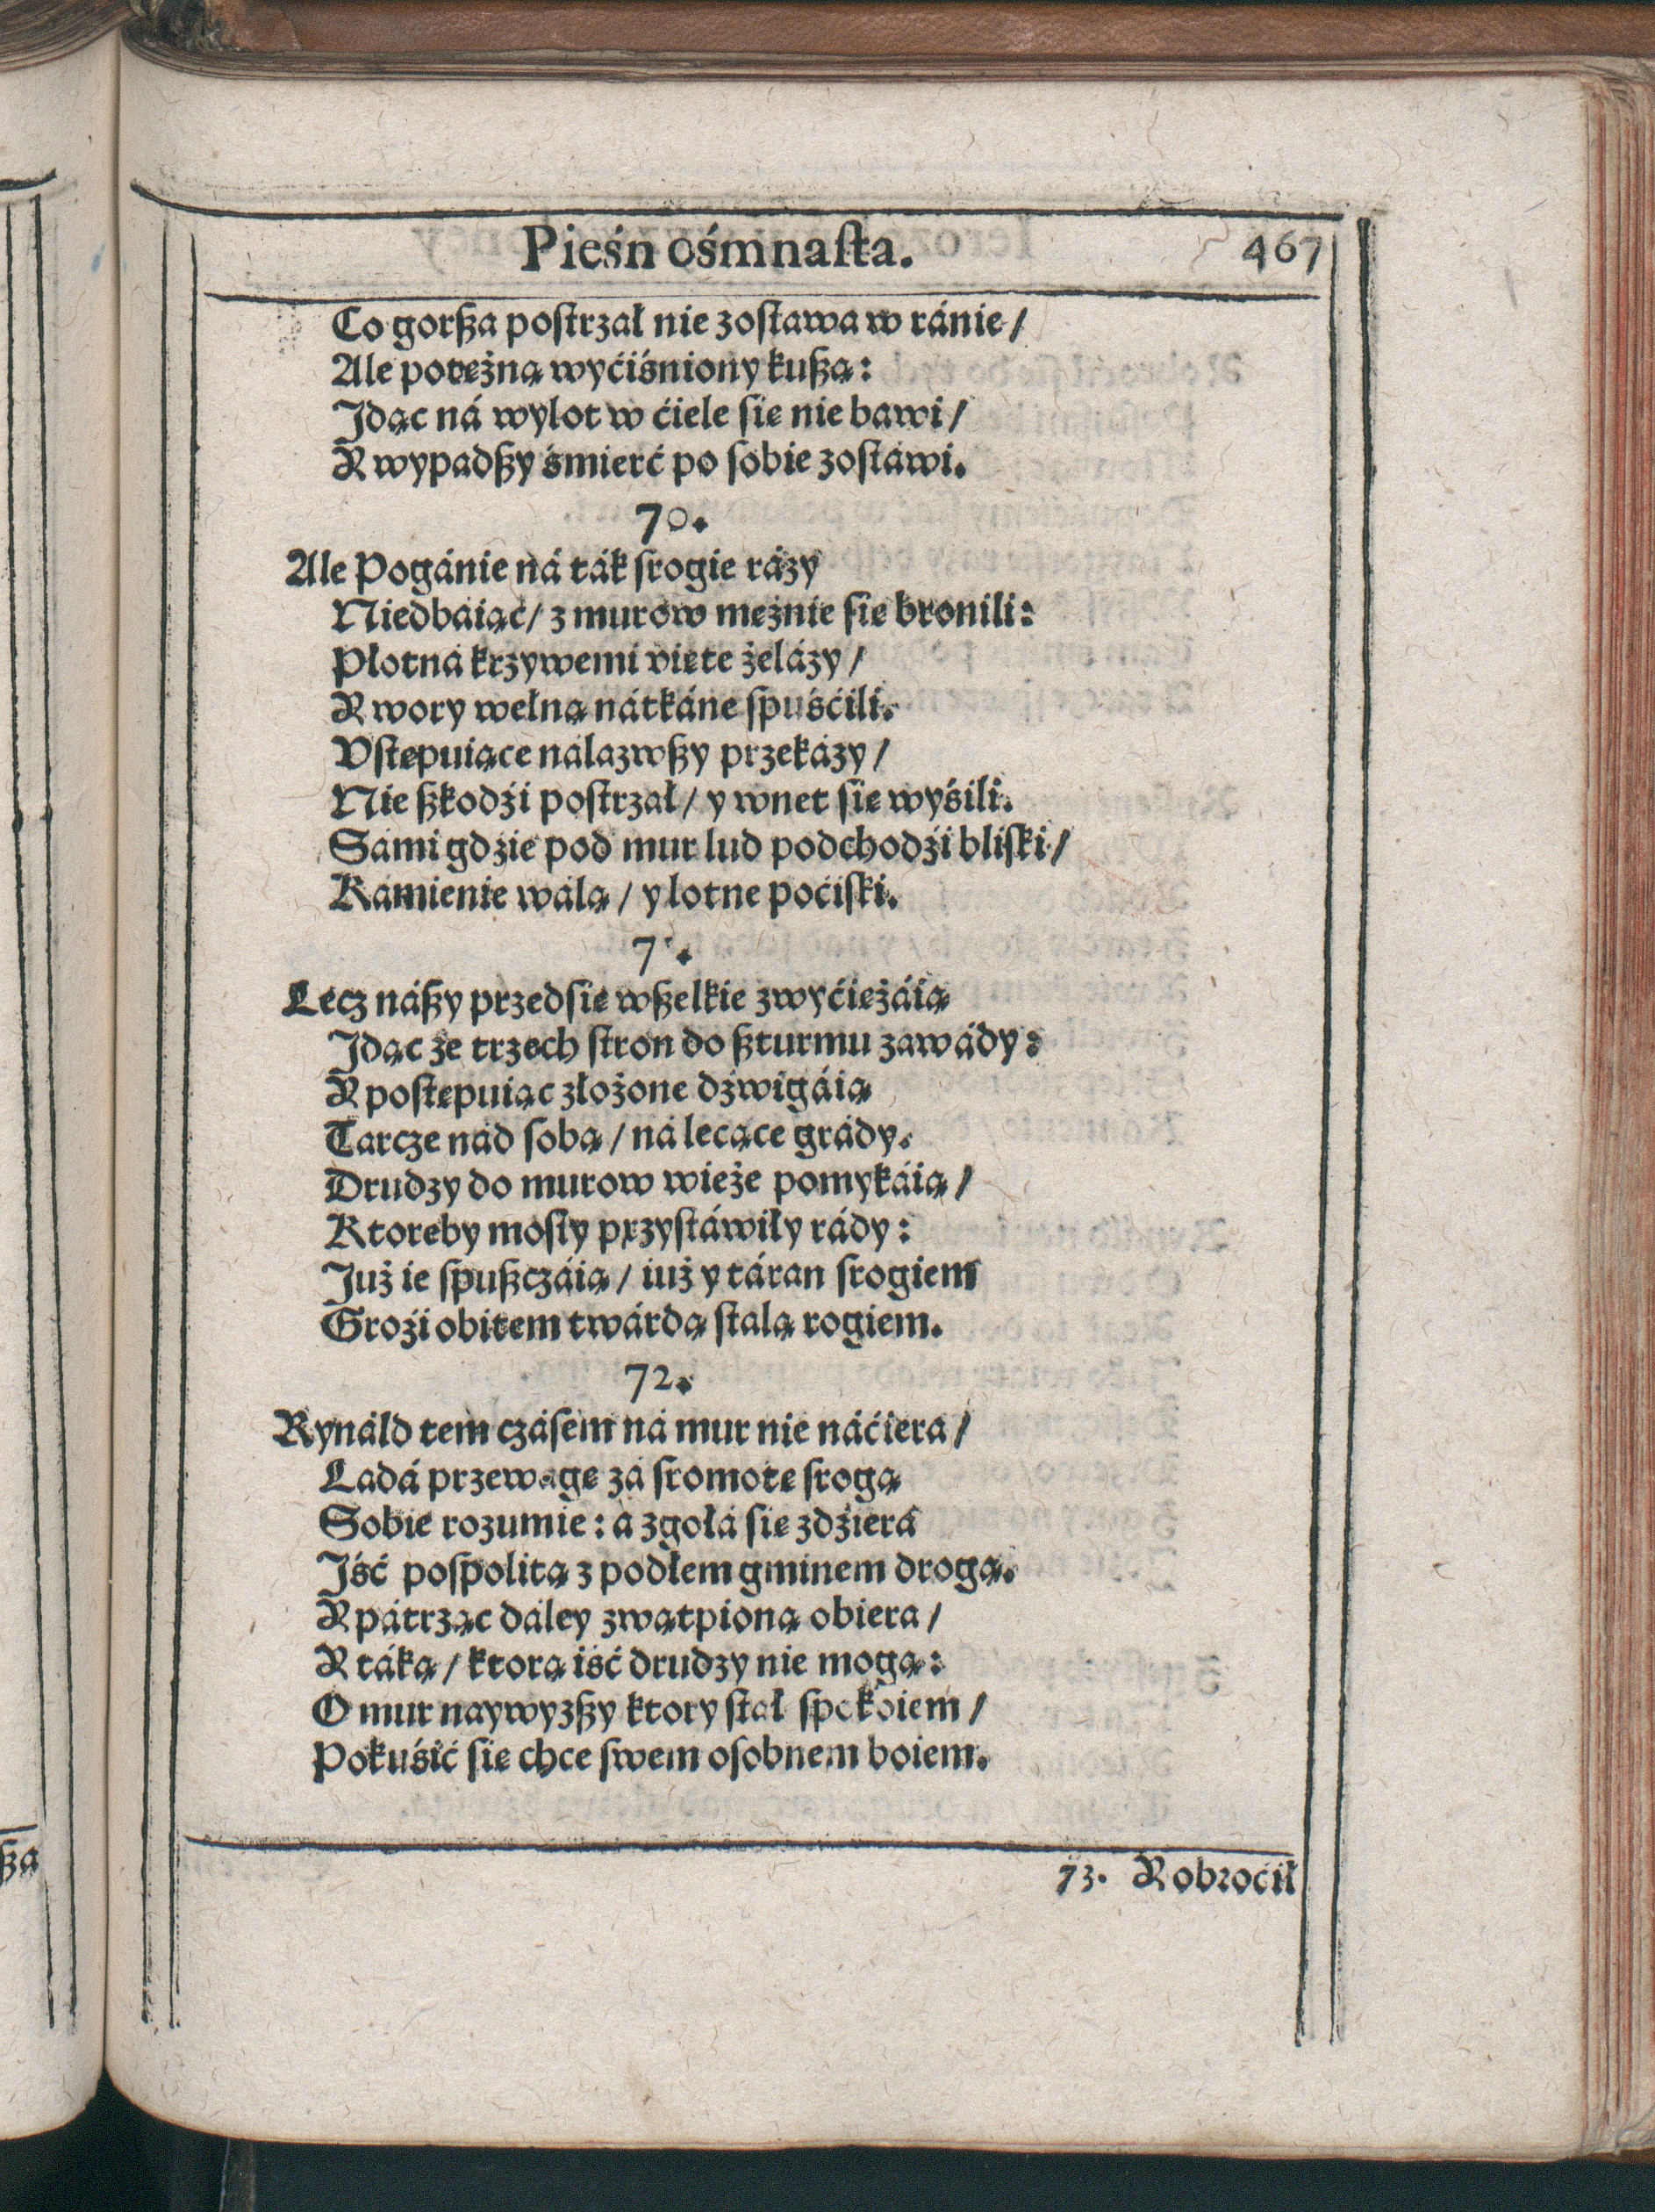 Pieśn ośmnaſta.
467
Co gorßa poſtrzał nie zoſtawa w ránie /
Ale potężną wyćiśniony kußą:
Jdąc ná wylot w ćiele ſię nie bawi /
A wypadßy śmierć po ſobie zoſtáwi.
70.
Ale Pogánie ná ták ſrogie rázy
Niedbáiąc / z murow mężnie ſię bronili:
Płotná krzywemi vięte żelázy /
A wory wełną nátkáne ſpuśćili.
Vſtępuiące nálazwßy przekázy /
Nie ßkodźi poſtrzał / y wnet ſię wyśili.
Sámi gdzie pod mur lud podchodźi bliſki /
Kámienie wálą / y lotne poćiſki.
7.
Lecz náßy przedſię wßelkie zwyćiężáią
Jdąc ze trzech ſtron do ßturmu zawády:
A poſtępuiąc złożone dźwigáią
Tarcze nád ſobą / ná lecące grády.
Drudzy do murow wieże pomykáią /
Ktoreby moſty przyſtáwiły rády:
Już ie ſpußczáią / iuż y táran ſrogiem
Groźi obitem twárdą ſtalą rogiem.
72.
Rynáld tem czáſem ná mur nie náćiera /
Ladá przewagę zá ſromotę ſrogą
Sobie rozumie: á zgołá ſię zdźiera
Jść poſpolitą z podłem gminem drogą.
A pátrząc dáley zwątpioną obiera /
A táką / ktorą iść drudzy nie mogą:
O mur naywyzßy ktory ſtał ſpokoiem /
Pokuśić ſię chce ſwem oſobnem boiem.
73. A obroćił
ßa